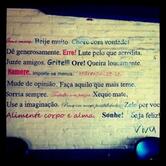 Beije muito. Chore com vontade!
Dê generosamente. Erre! Lute pelo que acredita.
Junte amigos. Grite!!! Ore! Queira loucamente.
Namore. importe-se menos.
Mude de opinião. Faça aquilo que mais teme.
Sorria sempre. Xeque mate.
Use a imaginação. Zele por você
Alimente corpo e alma. Sonhe! Seja feliz!
Viva